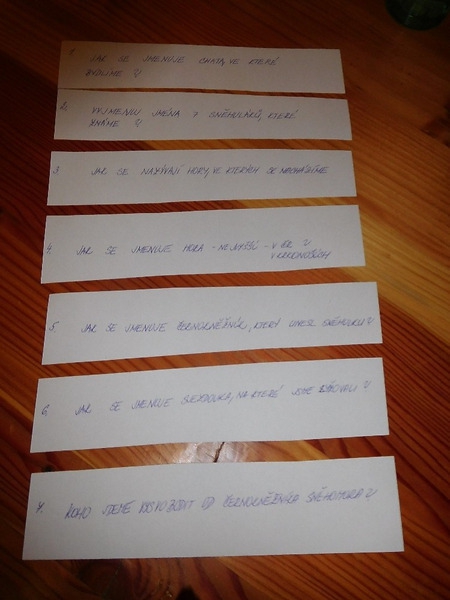 1. JAK SE JMENUJE CHATA, VE KTERÉ
BYDLÍME ?
2. VYJMENUJ JMÉNA 7 SNĚHULÁKŮ, KTERÉ
ZNÁME ?
3. JAK SE NAZÝVAJÍ HORY, VE KTERÝCH SE NACHÁZÍME
4. JAK SE JMENUJE HORA - NEJVYŠŠÍ - V ČR ?
V KRKONOŠÍCH
5. JAK SE JMENUJE ČERNOKNĚŽNÍK, KTERÝ UNESL SNĚHURKU ?
6. JAK SE JMENUJE SJEZDOVKA, NA KTERÉ JSME ?
7. KOHO JDEME VYSVOBODIT ČERNOKNĚŽNÍKA ?